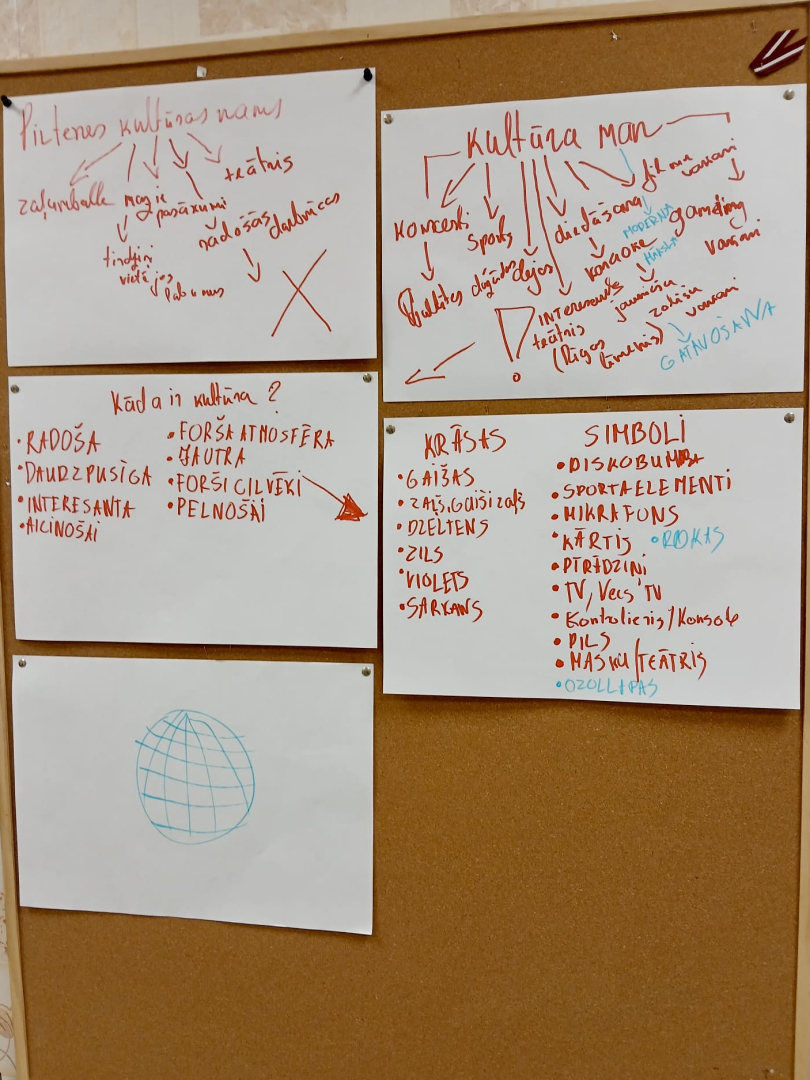 Piltenes kultūras nams
zaļumballe
mazie
pasākumi
teātris
radošās darbnīcas
tirdziņi
vietējos
Kultūra man
Koncerti
Sports
dziedāšana
filmu
vakari
MODERNĀ
MĀKSLA
karaoke
gaming
vakari
dažādas
dejas
INTERESANTS
teātris
(Rīgas
līmenis)
jauniešu
vakari
GATAVOŠANA
!
Kāda ir kultūra ?
• RADOŠA
• DAUDZPUSĪGA
• INTERESANTA
• AICINOŠAI
• FORŠA ATMOSFĒRA
• JAUTRA
• FORŠI CILVĒKI
• PELNOŠĀI
KRĀSAS
• GAIŠAS
• ZAĻŠ, GAIŠI ZAĻŠ
• DZELTENS
• ZILS
• VIOLETS
• SARKANS
SIMBOLI
• DISKOBUMBA
• SPORTA ELEMENTI
• MIKRAFONS
• KĀRTIS • ROKAS
• PĪRĀDZIŅI
• TV, Vecs TV
• Kontrolieris/Konsole
• PILS
• MASKU/TEĀTRIS
• OZOLLAPAS